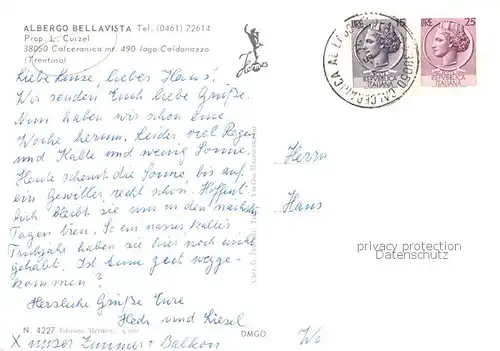 ALBERGO BELLAVISTA Tel. (0461) 72614
Prop. L. Curzel
38050 Calceranica mt. 490 lago Caldonazzo
(Trentino)
LIRE 15
LIRE 25
REPUBBLICA ITALIANA
REPUBBLICA ITALIANA
38050 CALCERANICA AL LAGO
Liebe Luise, lieber Hans!
Wir senden Euch liebe Grüße.
Nun haben wir schon eine
Woche herum. Leider viel Regen
und Kälte und wenig Sonne.
Heute scheint die Sonne, bis auf
ein Gewitter recht schön. Hoffent
lich bleibt sie uns in den nächsten
Tagen treu. So ein nasses kaltes
Frühjahr haben sie hier noch nicht
gehabt. Ist Eure zeit wegge-
kommen?
Herzliche Grüße Eure
Hedi und Liesel
Herrn
Hans
Wi
privacy protection
Datenschutz
N. 4227 Edizioni
DMGO
X unser Zimmer + Balkon